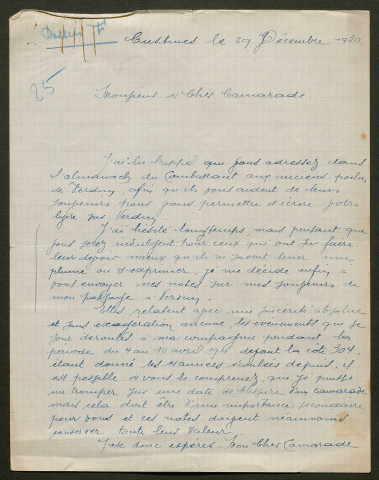 Dossier
Custines le 29 Décembre 1930
25
Monsieur et Cher Camarade
J'ai lu l'appel que vous adressez dans
l'almanach du Combattant aux anciens poilus
de Verdun afin qu'ils vous aident de leurs
souvenirs pour vous permettre d'écrire votre
livre sur Verdun.
J'ai hésité longtemps, mais pensant que
vous serez indulgent pour ceux qui ont su faire
leur devoir mieux qu'ils ne savent tenir une
plume ou s'exprimer, je me décide enfin à
vous envoyer mes notes sur mes souvenirs de
mon passage à Verdun.
Elles relatent avec une sincérité absolue
et sans exagération aucune les évènements qui se
sont déroulés à ma compagnie pendant la
période du 4 au 10 avril 1916 devant la côte 304
étant donné les années écoulées depuis, il
est possible et vous le comprenez que je puisse
me tromper sur une date de camarade
mais cela doit être d'une importance secondaire
pour vous et ces notes doivent néanmoins
conserver toute leur valeur.
J'ose donc espérer Mon Cher Camarade